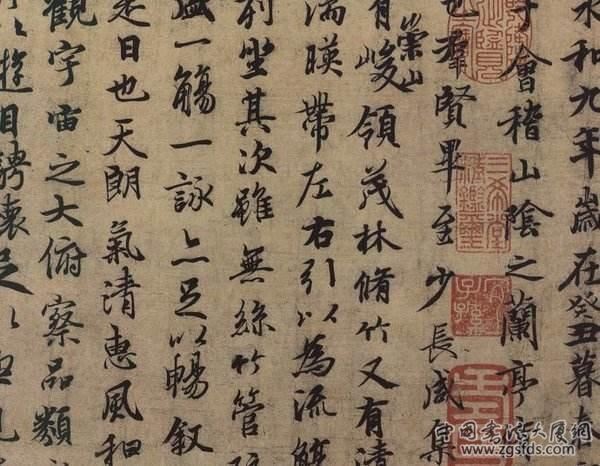 永和九年歲在癸丑暮春
于會稽山陰之蘭亭
也羣賢畢至少長咸集
有崇山峻領茂林脩竹又有清
湍暎帶左右引以為流觴
列坐其次雖無絲竹管弦
盛一觴一詠亦足以暢敘
是日也天朗氣清惠風和
觀宇宙之大俯察品類
以遊目騁懷足以極
三希堂精鑑璽
宜子孫
www.zgsfds.com